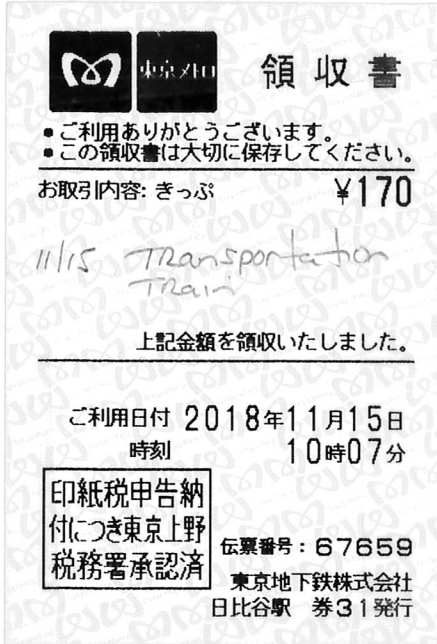 東京メトロ 領収書
▪ご利用ありがとうございます。
▪この領収書は大切に保存してください。
お取引内容: きっぷ ¥170
11/15 Transportation
Train
上記金額を領収いたしました。
ご利用日付 2018年11月15日
時刻 10時07分
印紙税申告納
付につき東京上野
税務署承認済
伝票番号：67659
東京地下鉄株式会社
日比谷駅 券31発行